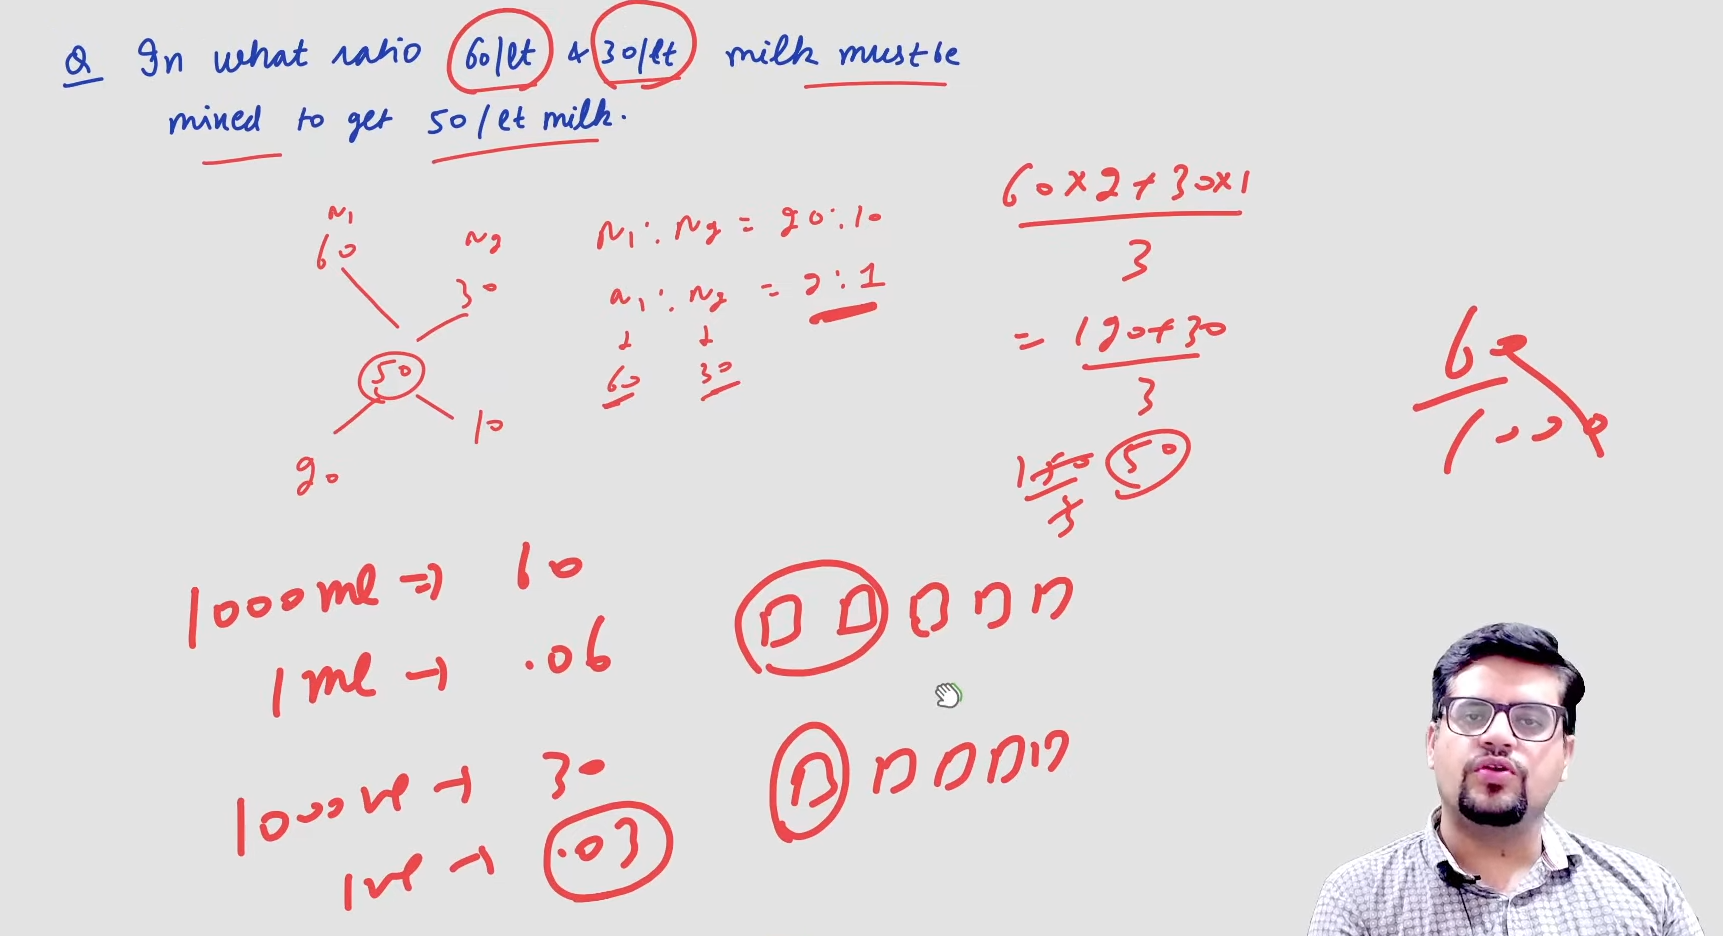 Q In what ratio 60/lt & 30/lt milk must be
mixed to get 50/lt milk.
N1
60
N2
30
50
20
10
N1 : N2 = 20 : 10
n1 : N2 = 2 : 1
↓ ↓
60 30
60 × 2 + 30 × 1
3
= 120 + 30
3
150
3
50
60
1000
1000 ml ⇒ 60
1 ml → .06
1000 ml → 30
1 ml → .03